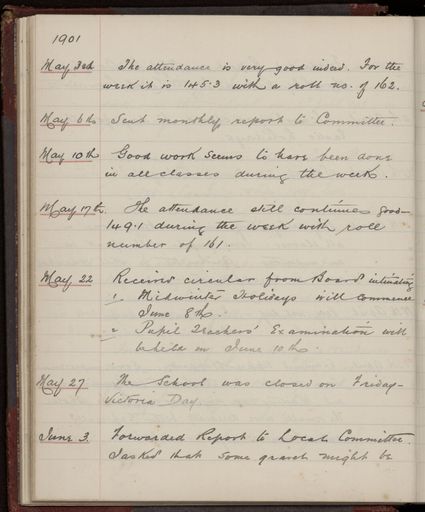 1901
May 3rd The attendance is very good indeed. For the
week it is 145.3 with a roll no. of 162.
May 6th Sent monthly report to Committee.
May 10th Good work seems to have been done
in all classes during the week.
May 17th The attendance still continues good-
149.1 during the week with roll
number of 161.
May 22 Received circular from Board intimating
1. Midwinter Holidays will commence
June 8th.
2 Pupil Teachers' Examination will
be held on June 10th.
May 27 The School was closed on Friday-
Victoria Day
June 3. Forwarded Report to Local Committee.
I asked that some gravel might be